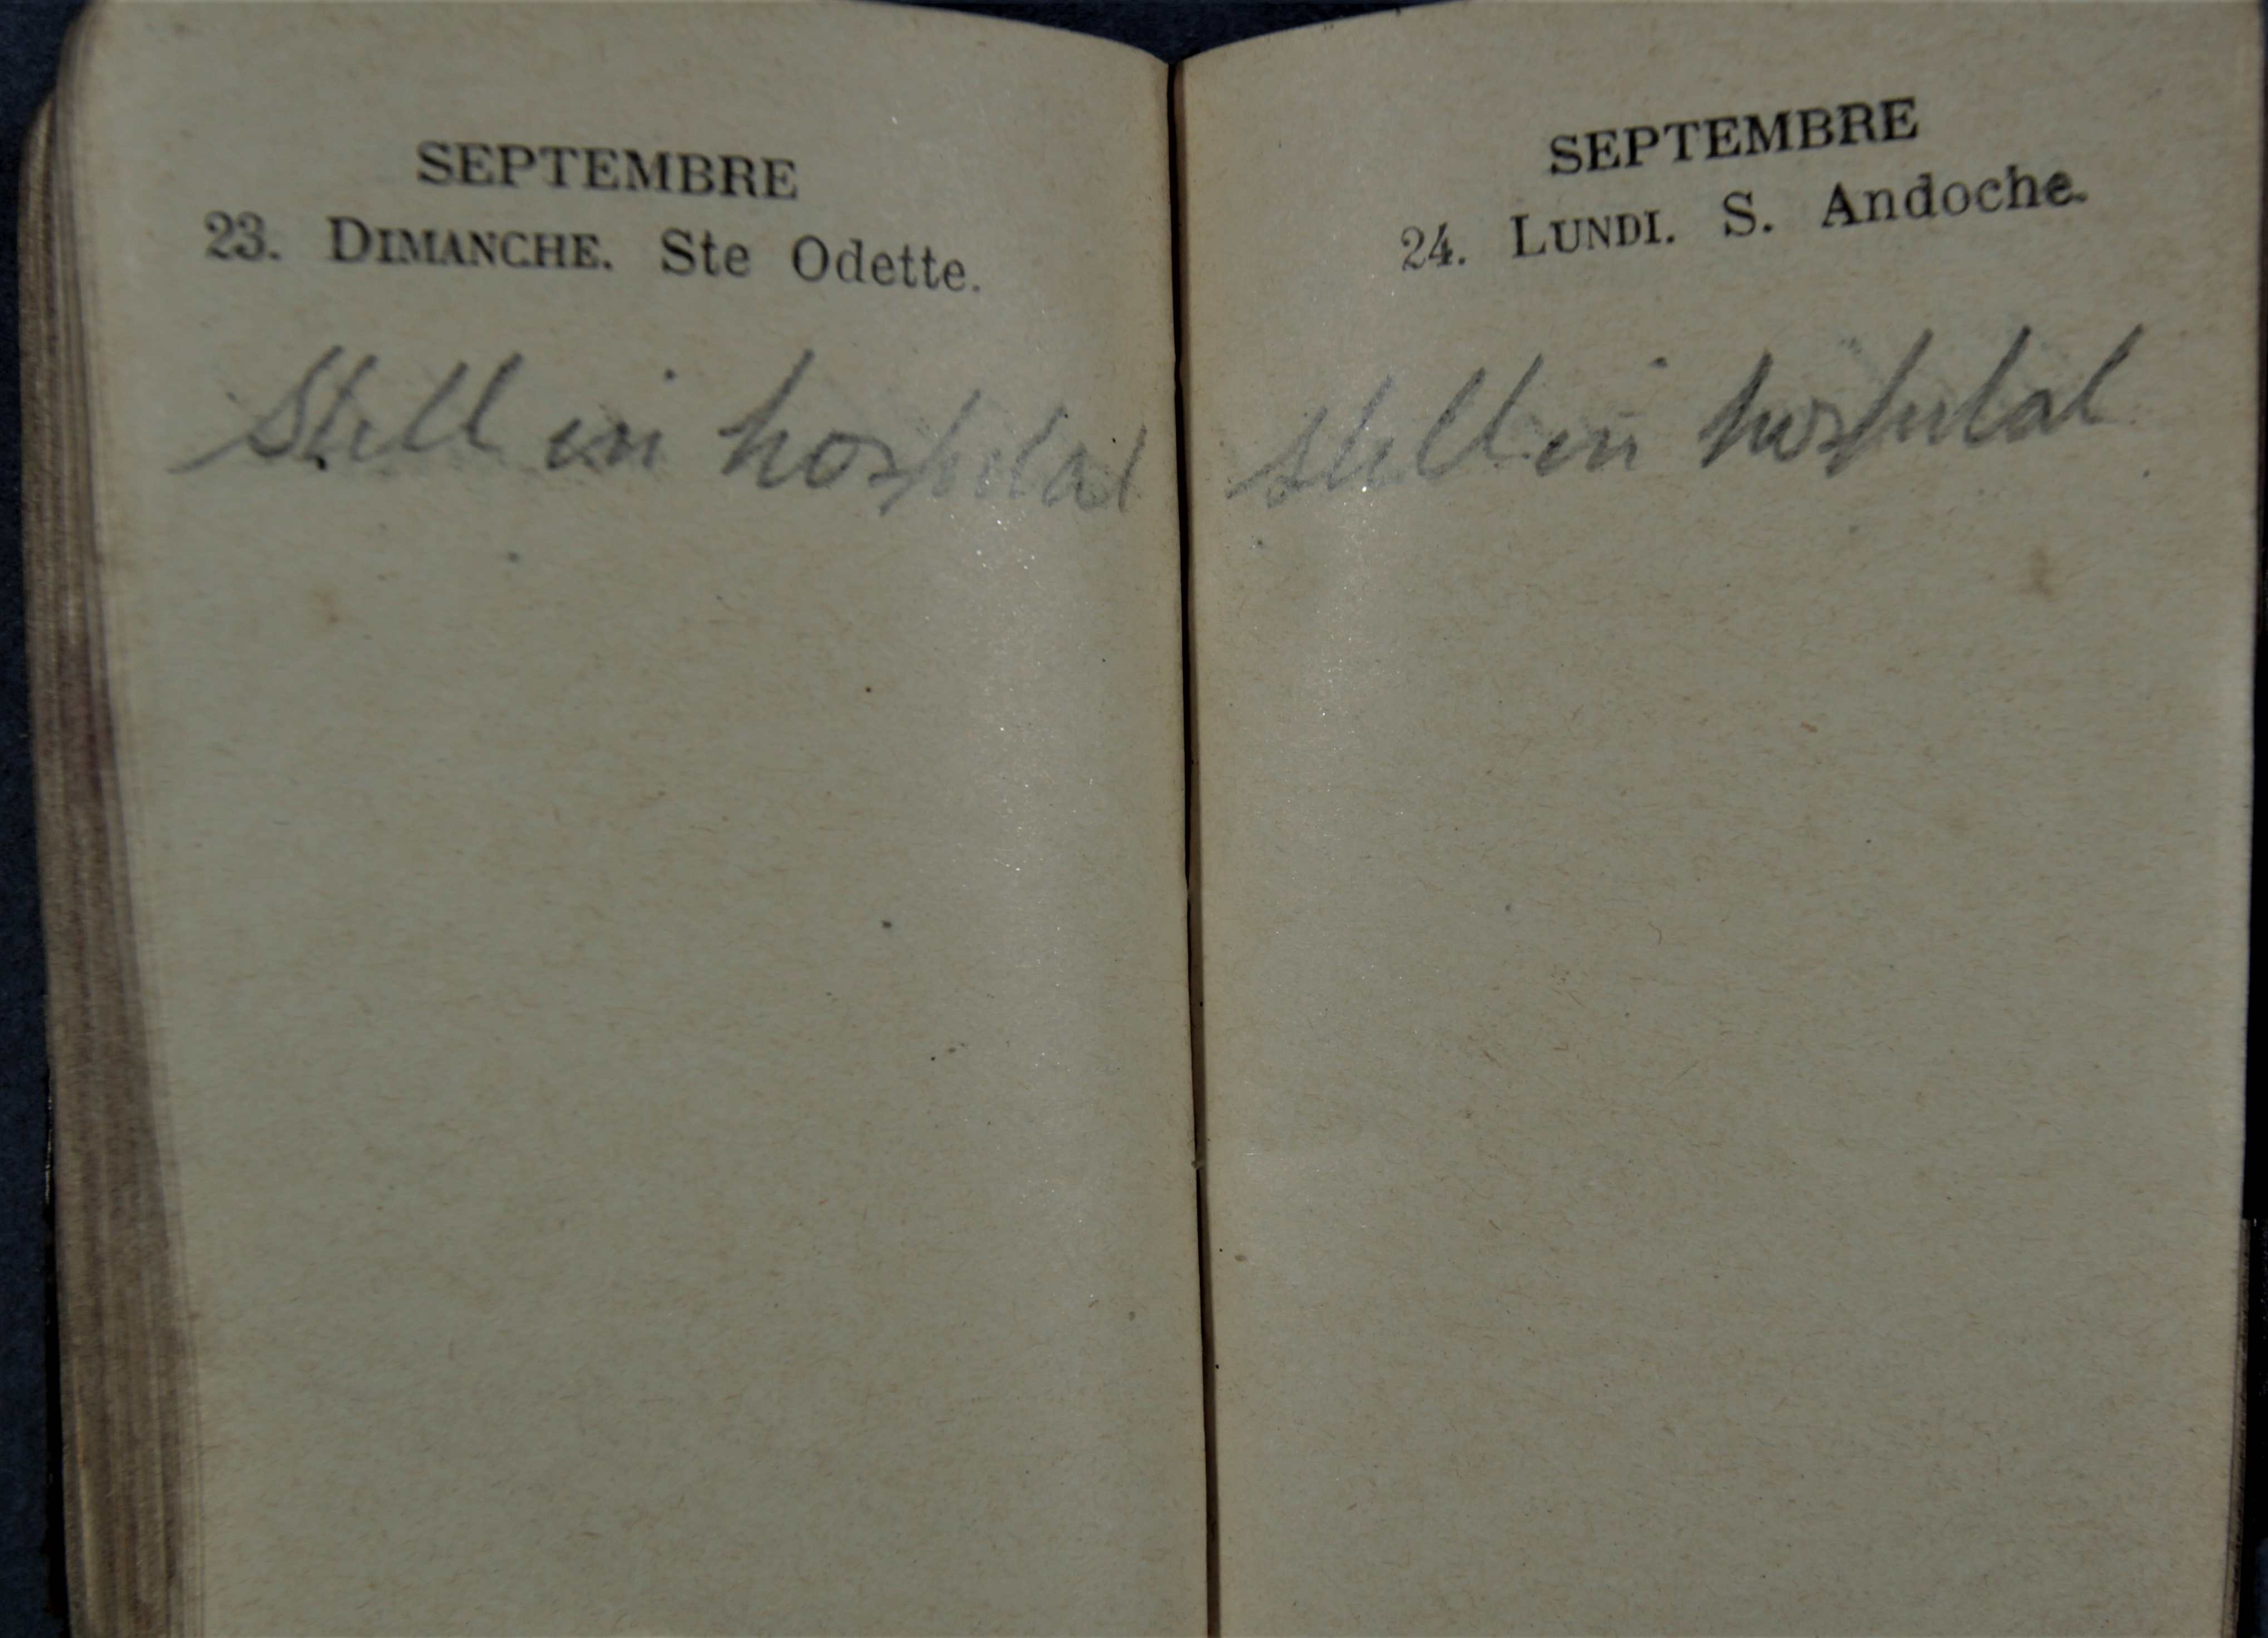 SEPTEMBRE
23. DIMANCHE. Ste Odette.
Still in hospital
SEPTEMBRE
24. LUNDI. S. Andoche.
Still in hospital